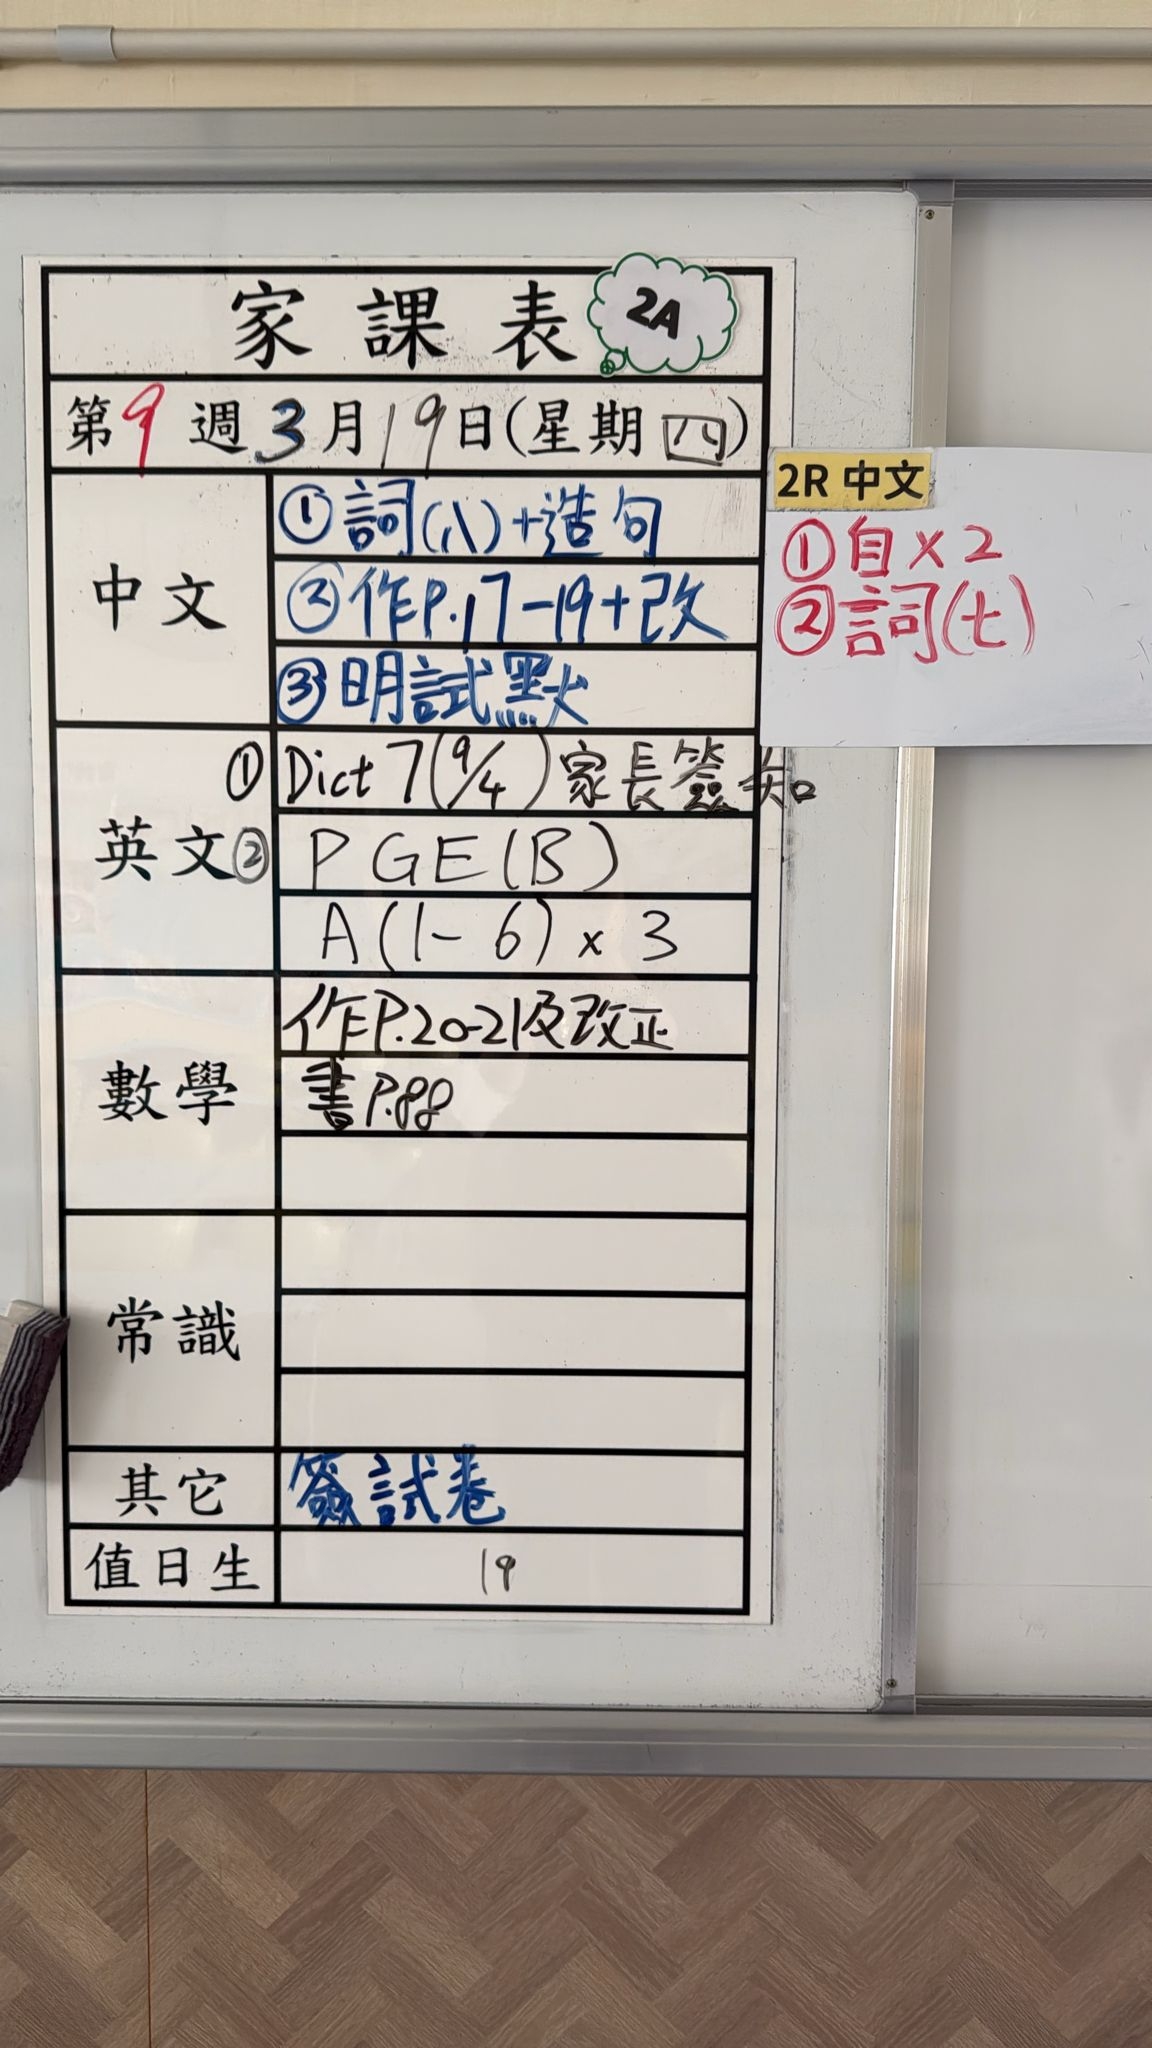 家課表 2A
第9週3月19日(星期四)
中文
①詞(八)+造句
②作P.17-19+改
③明試默
2R 中文
①自x2
②詞(七)
英文
①Dict 7(9/4)家長簽知
②PGE(B)
A(1-6)x3
數學
作P.20-21及改正
書P.88
常識
其它
簽試卷
值日生
19